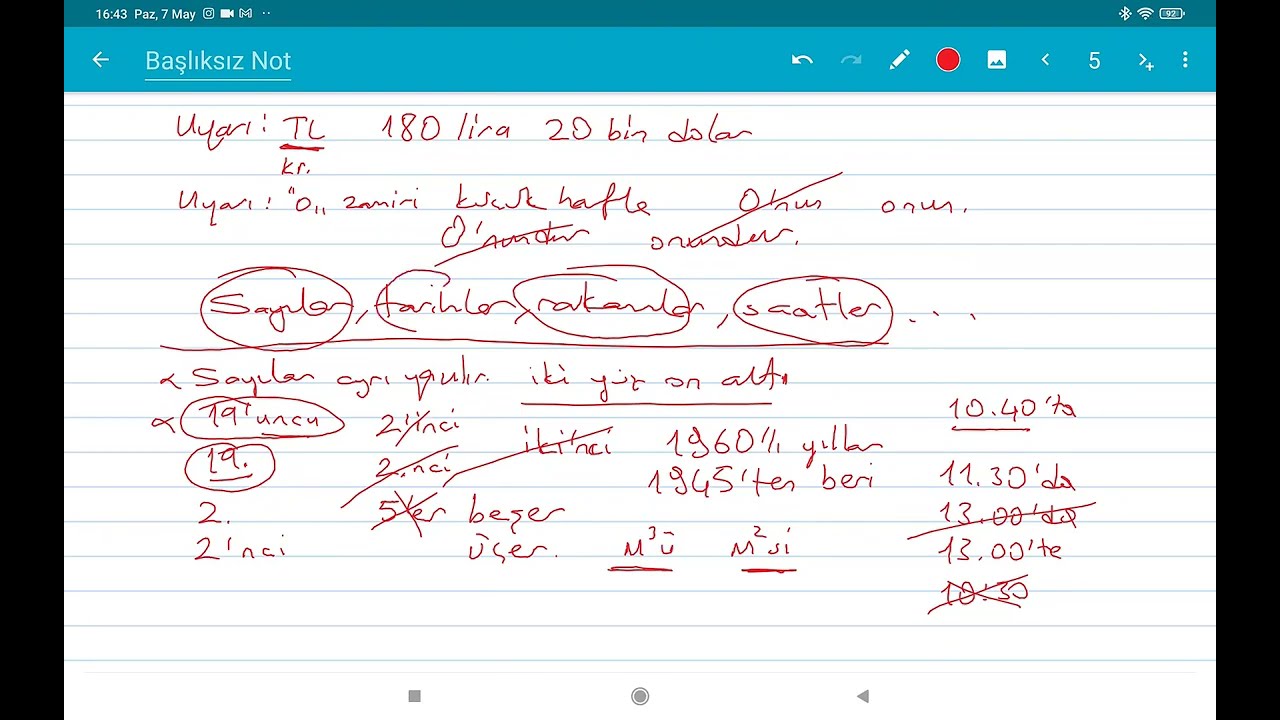 16:43 Paz, 7 May 92
Başlıksız Not 5
Uyarı: TL 180 lira 20 bin dolar
kr.
Uyarı: "o„ zamiri küçük harfle O'nun onun.
O'nundur onundur.
Sayılar, tarihler, rakamlar, saatler ....
Sayılar ayrı yazılır. iki yüz on altı
19'uncu 2'inci 10.40'ta
19. 2.nci iki'nci 1960'lı yıllar
1945'ten beri 11.30'da
2. 5'er beşer 13.00'da
2'nci üçer. M³ü M²si 13.00'te
10:30